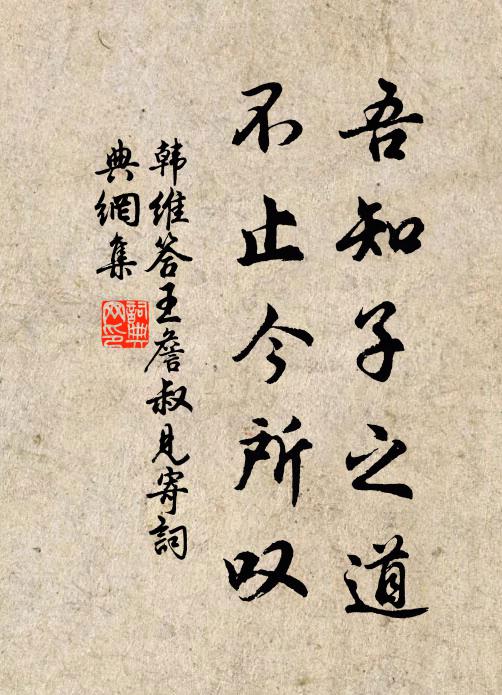 吾知子之道
不止今所叹
韩维答王詹叔见寄詞
典網集
詞典
网印